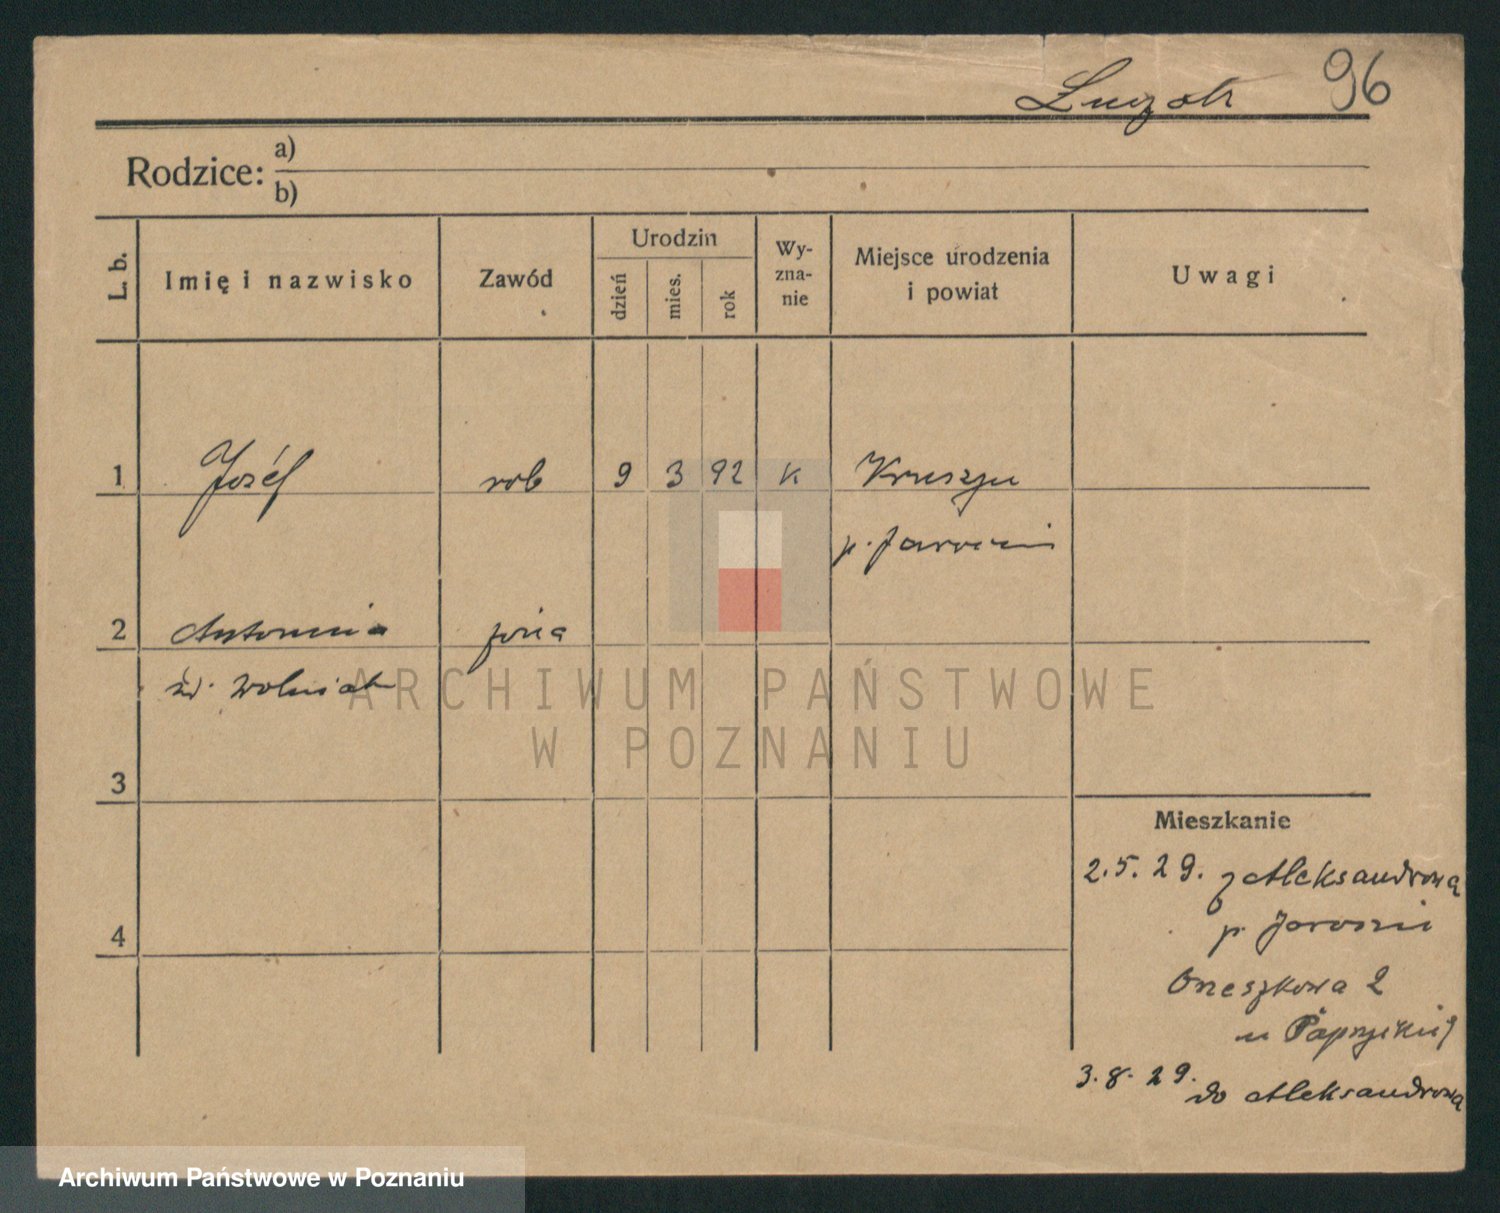 Łuczak 96
Rodzice: a)
b)
L. b. Imię i nazwisko Zawód Urodzin dzień mies. rok Wy-zna-nie Miejsce urodzenia i powiat Uwagi
1 Józef rob 9 3 92 K
p. Jarocin
2 Antonina żona
zd. Wolniak
ARCHIWUM PAŃSTWOWE
W POZNANIU
3
Mieszkanie
2.5.29. z Aleksandrowa
4
p. Jarocin
Orzeszkowa 2
u
3.8.29. do Aleksandrowa
Archiwum Państwowe w Poznaniu